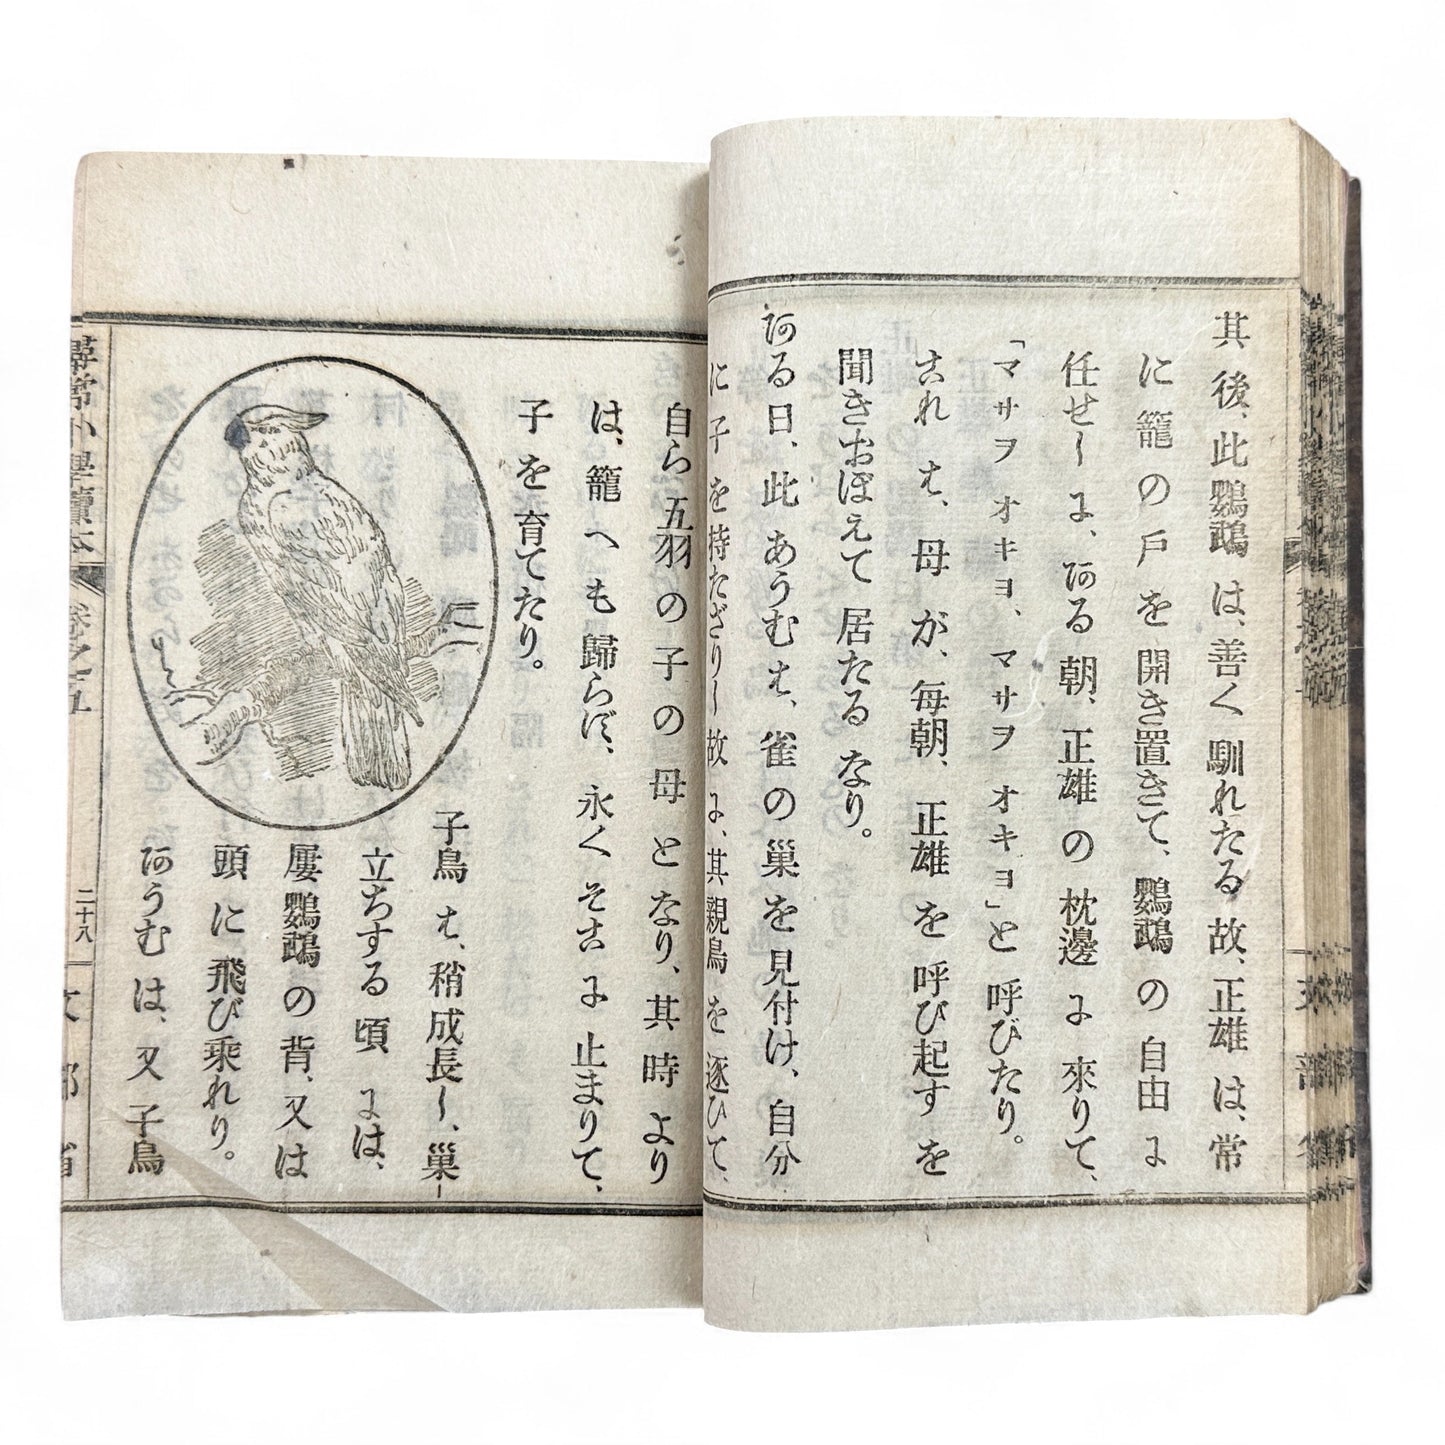 其後、此鸚鵡は、善く馴れたる故、正雄は、常
に籠の戸を開き置きて、鸚鵡の自由に
任せしに、ある朝、正雄の枕邊に來りて、
「マサヲオキヨ、マサヲオキヨ」と呼びたり。
これは、母が、毎朝、正雄を呼び起すを
聞きおぼえて居たるなり。
ある日、此あうむは、雀の巣を見付け、自分
に子を持たざりし故に、其親鳥を逐ひて、
自ら五羽の子の母となり、其時より
は、籠へも歸らず、永くそこに止まりて、
子を育てたり。
子鳥は、稍成長し、巣
立ちする頃には、
屢鸚鵡の背、又は
頭に飛び乘れり。
あうむは、又子鳥
尋常小學讀本
卷之五
二十八
文部省